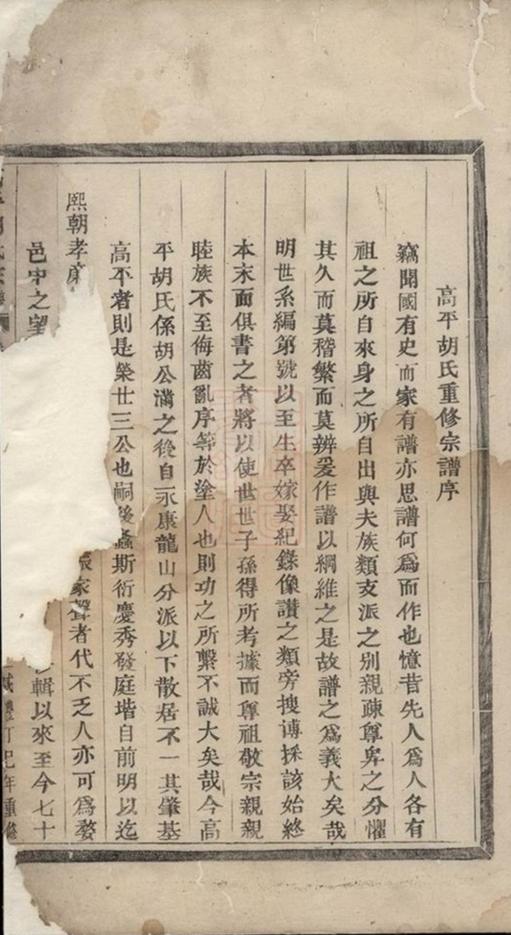 高平胡氏重修宗譜序
竊聞國有史而家有譜亦思譜何爲而作也憶昔先人爲人各有
祖之所自來身之所自出與夫族類支派之別親疎尊卑之分懼
其久而莫稽繁而莫辨爰作譜以綱維之是故譜之爲義大矣哉
明世系編第號以至生卒嫁娶紀錄像讚之類旁搜博採該始終
本末而俱書之者將以使世世子孫得所考據而尊祖敬宗親親
睦族不至侮齒亂序等於塗人也則功之所繫不誠大矣哉今高
平胡氏係胡公滿之後自永康龍山分派以下散居不一其肇基
高平者則是榮廿三公也嗣後螽斯衍慶秀發庭堦自前明以迄
熙朝孝 家聲者代不乏人亦可爲婺
邑中之望 輯以來至今七十
咸豐丁巳年重修